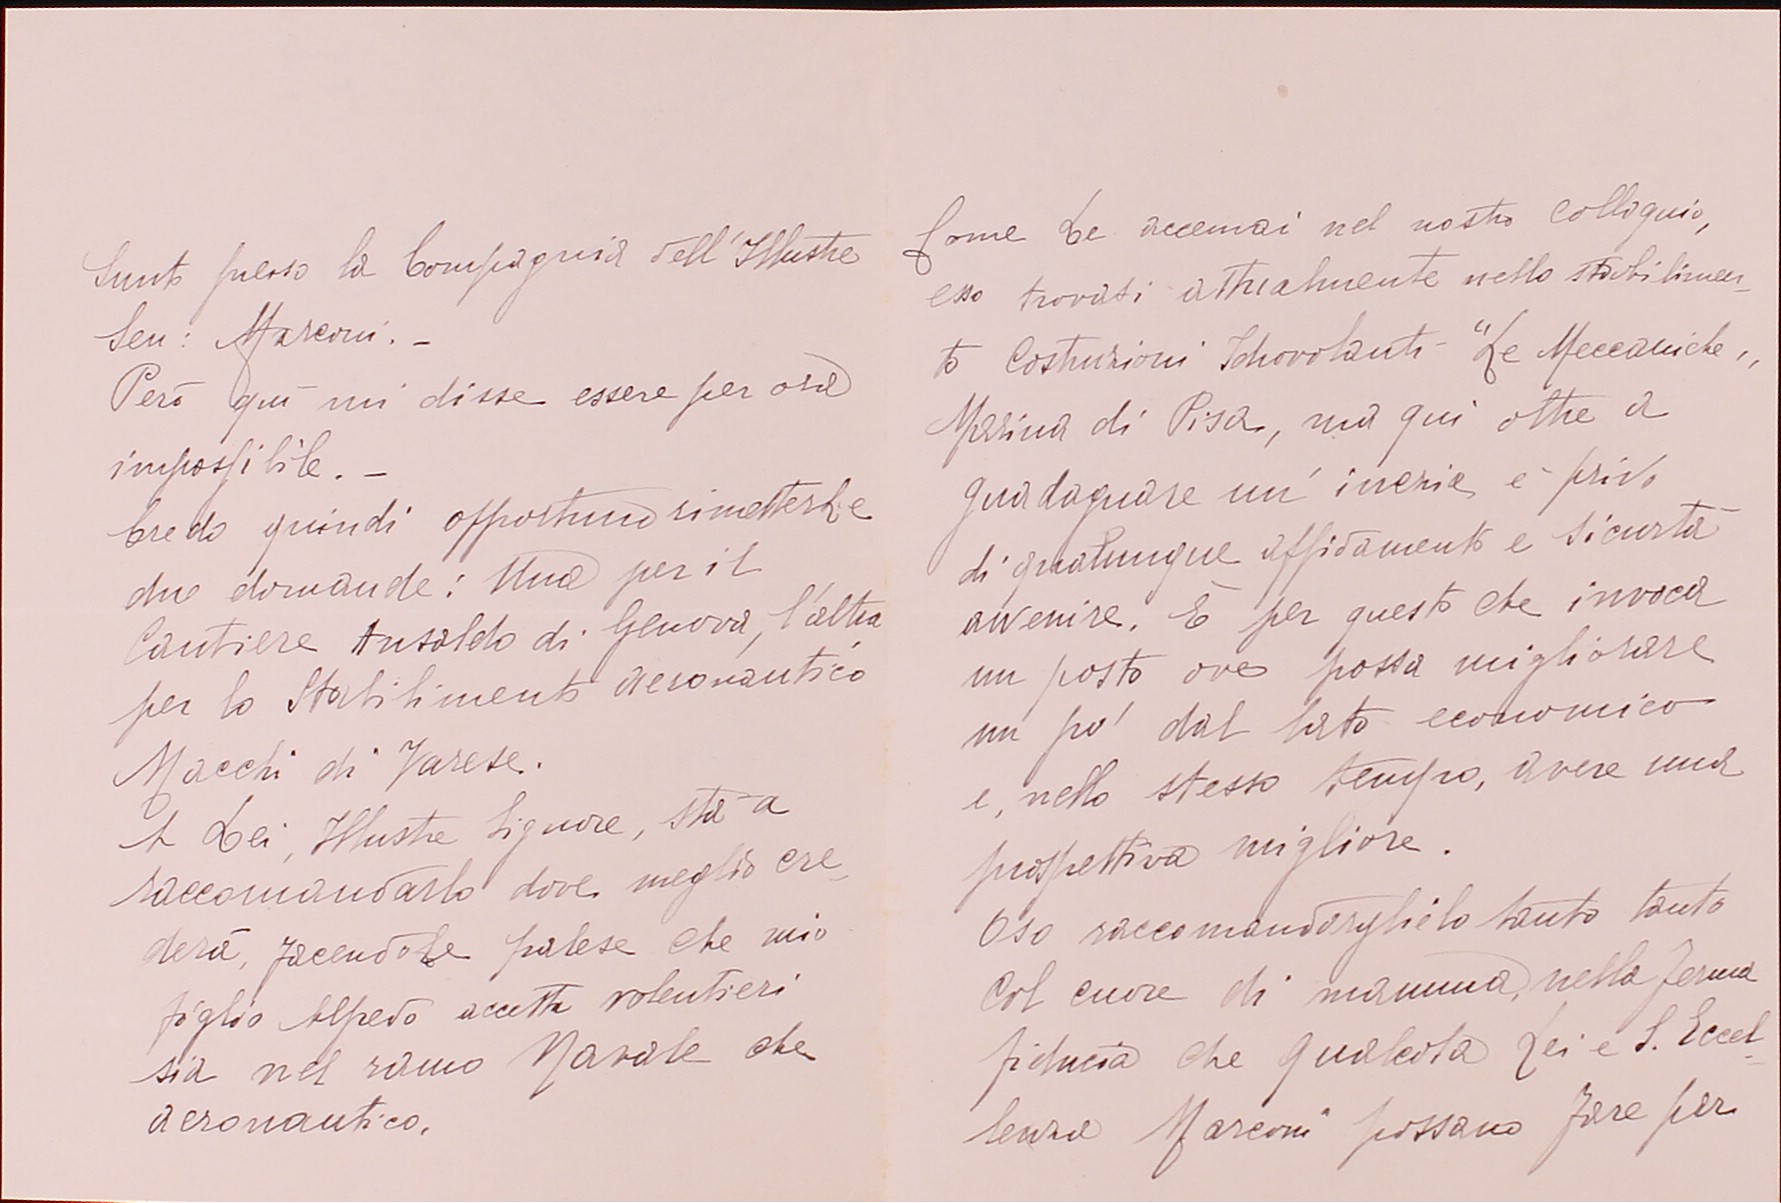 sunto presso la Compagnia dell'Illustre
Sen: Marconi. -
Però quì mi disse essere per ora
impossibile. -
Credo quindi opportuno rimetterLe
due domande: Una per il
Cantiere Ansaldo di Genova, l'altra
per lo Stabilimento aeronautico
Macchi di Varese.
A Lei, Illustre Signore, stà a
raccomandarlo dove meglio cre-
derà, facendoLe palese che mio
figlio Alfredo accetta volentieri
sia nel ramo Navale che
aeronautico.
Come Le accennai nel nostro colloquio,
esso trovasi attualmente nello stabilimen-
to Costruzioni Idrovolanti - "Le Meccaniche,,
Marina di Pisa, ma qui oltre a
guadagnare un'inezia, è privo
di qualunque affidamento e sicurtà
avvenire. È per questo che invoca
un posto ove possa migliorare
un po' dal lato economico
e, nello stesso tempo, avere una
prospettiva migliore.
Oso raccomandarglielo tanto tanto
col cuore di mamma, nella ferma
fiducia che qualcosa Lei e S. Eccel-
lenza Marconi possano fare per